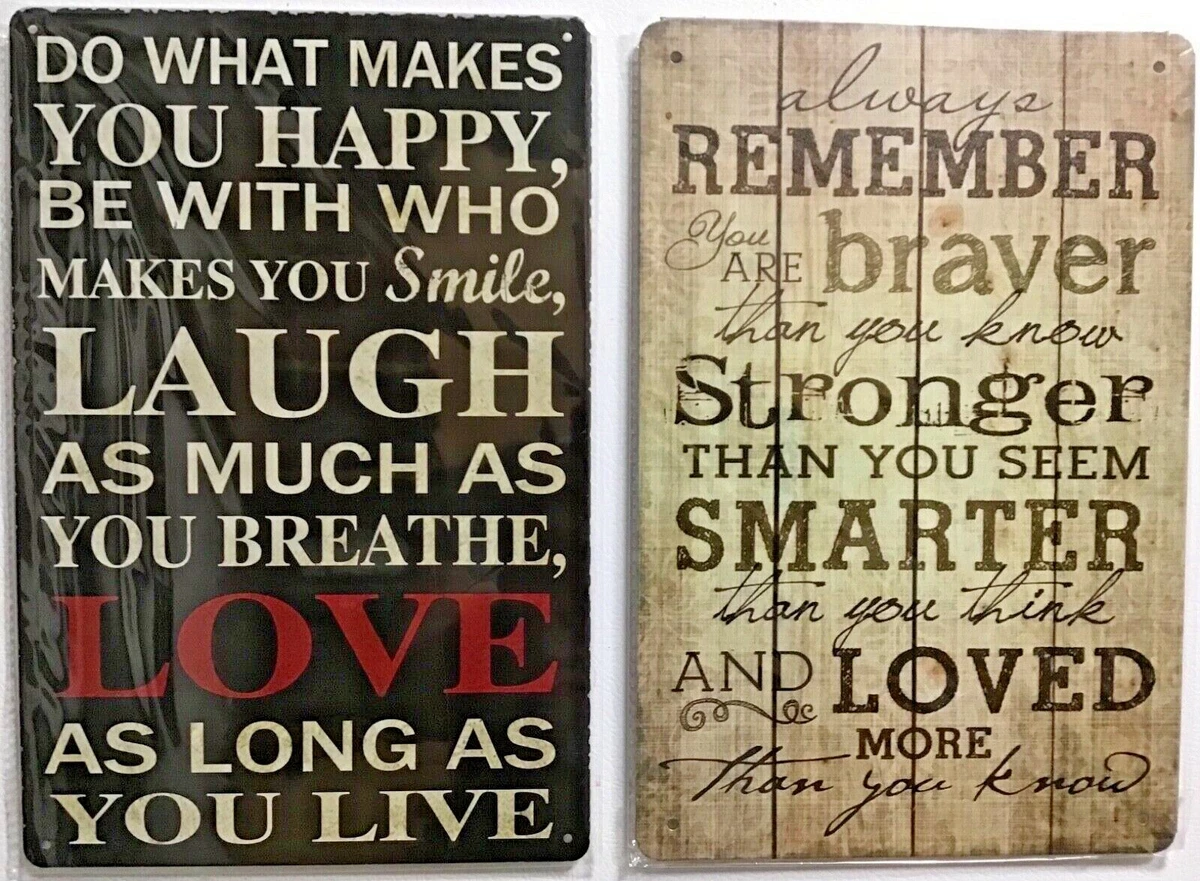 DO WHAT MAKES
YOU HAPPY,
BE WITH WHO
MAKES YOU Smile,
LAUGH
AS MUCH AS
YOU BREATHE,
LOVE
AS LONG AS
YOU LIVE
always
REMEMBER
You
ARE braver
than you know
Stronger
THAN YOU SEEM
SMARTER
than you think
AND LOVED
MORE
Than you know